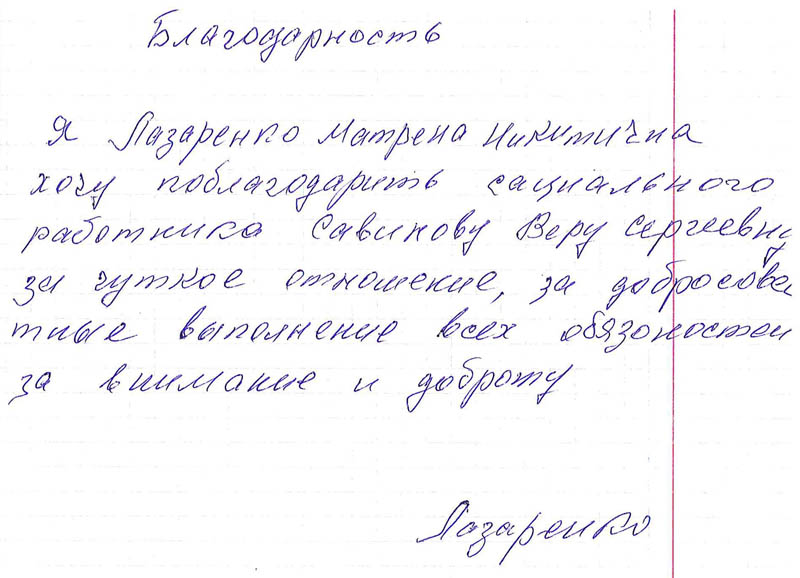 Благодарность
Я Лазаренко Матрена Никитична
хочу поблагодарить сациального
работника Савинову Веру Сергеевну
за чуткое отношение, за добросовес
тные выполнение всех обязоностей
за внимание и доброту
Лазаренко